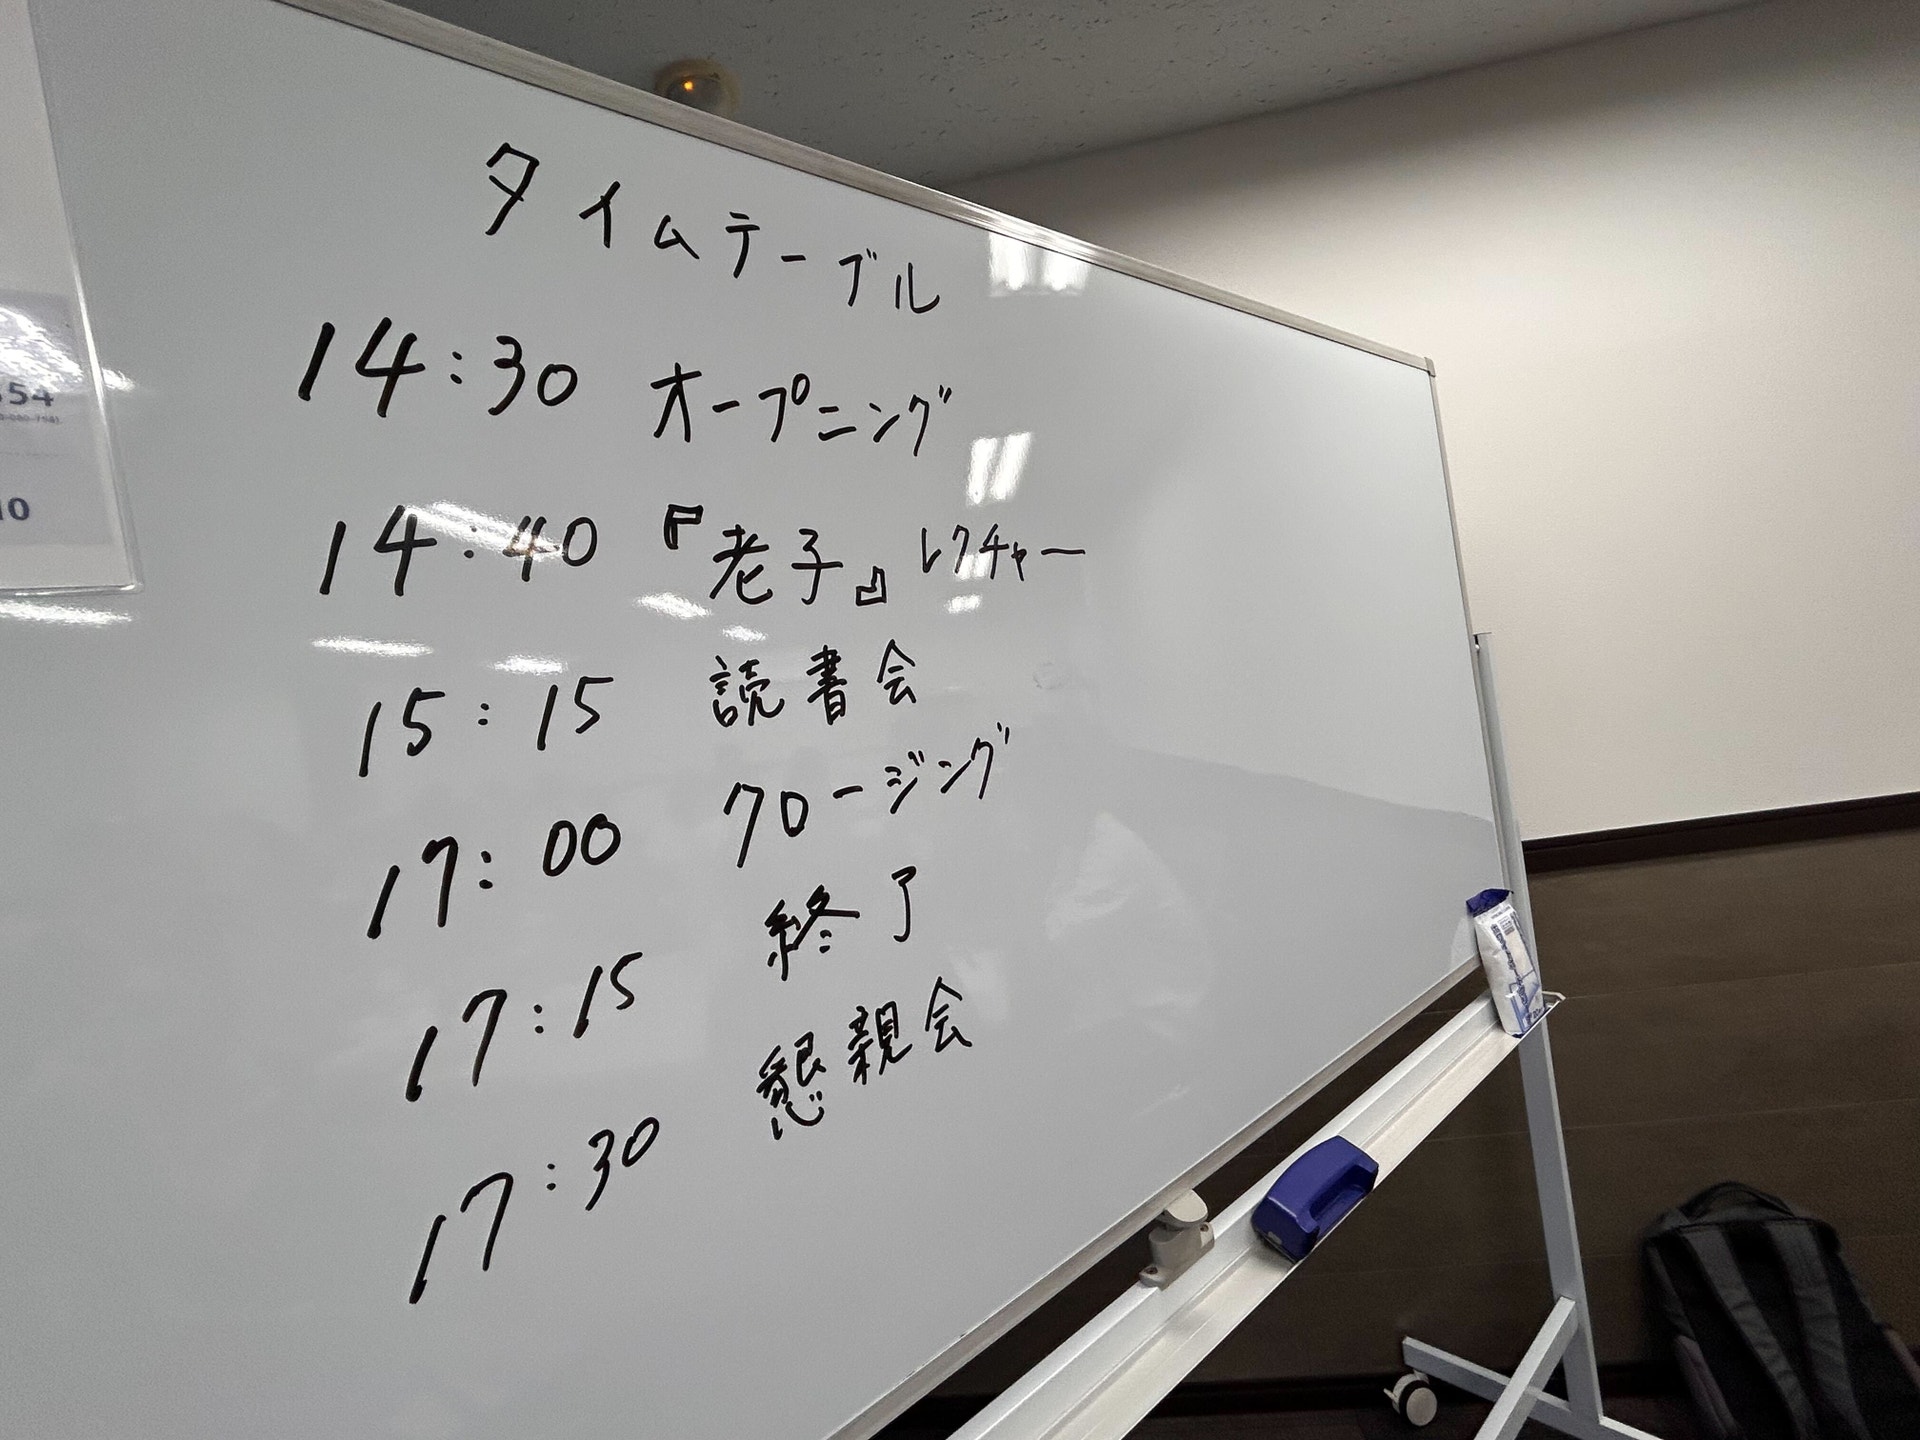 タイムテーブル
14:30 オープニング
14:40 『老子』レクチャー
15:15 読書会
17:00 クロージング
17:15 終了
17:30 懇親会
54
10